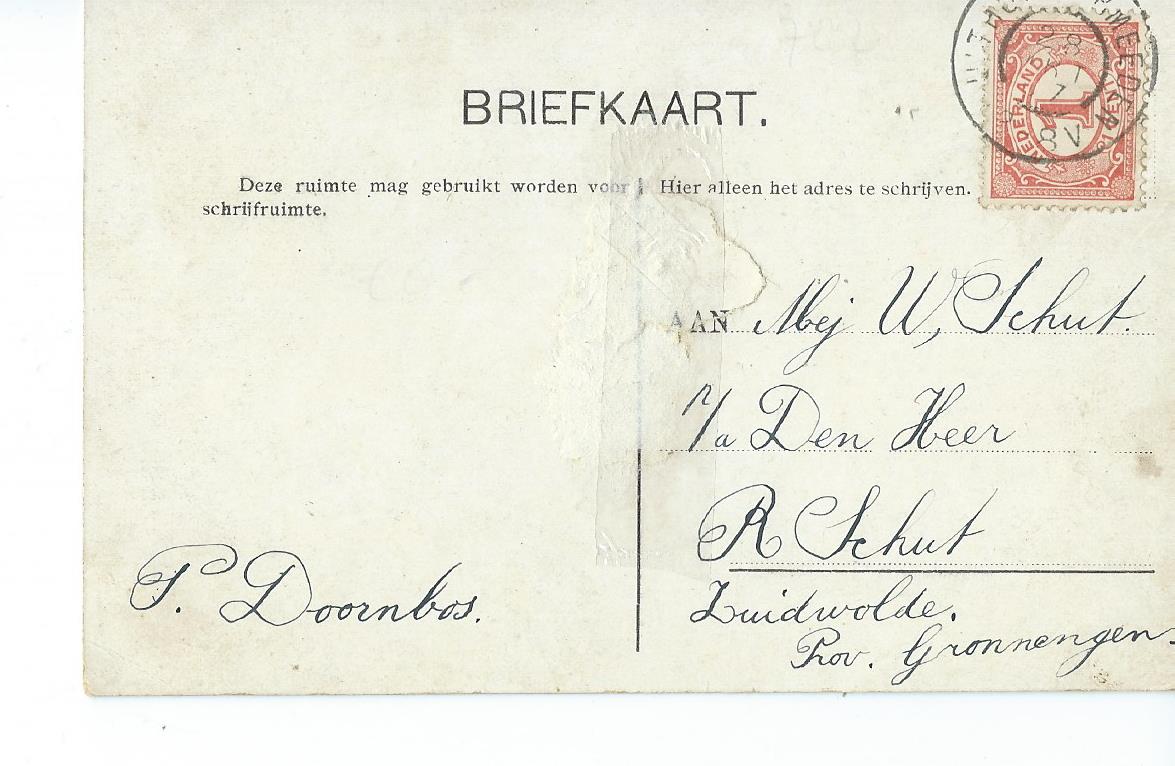 BRIEFKAART.
Deze ruimte mag gebruikt worden voor
schrijfruimte.
Hier alleen het adres te schrijven.
NEDERLAND
1
CENT
8V
AAN Mej W, Schut.
p/a Den Heer
R Schut
Zuidwolde.
Prov. Gronnengen
P. Doornbos.